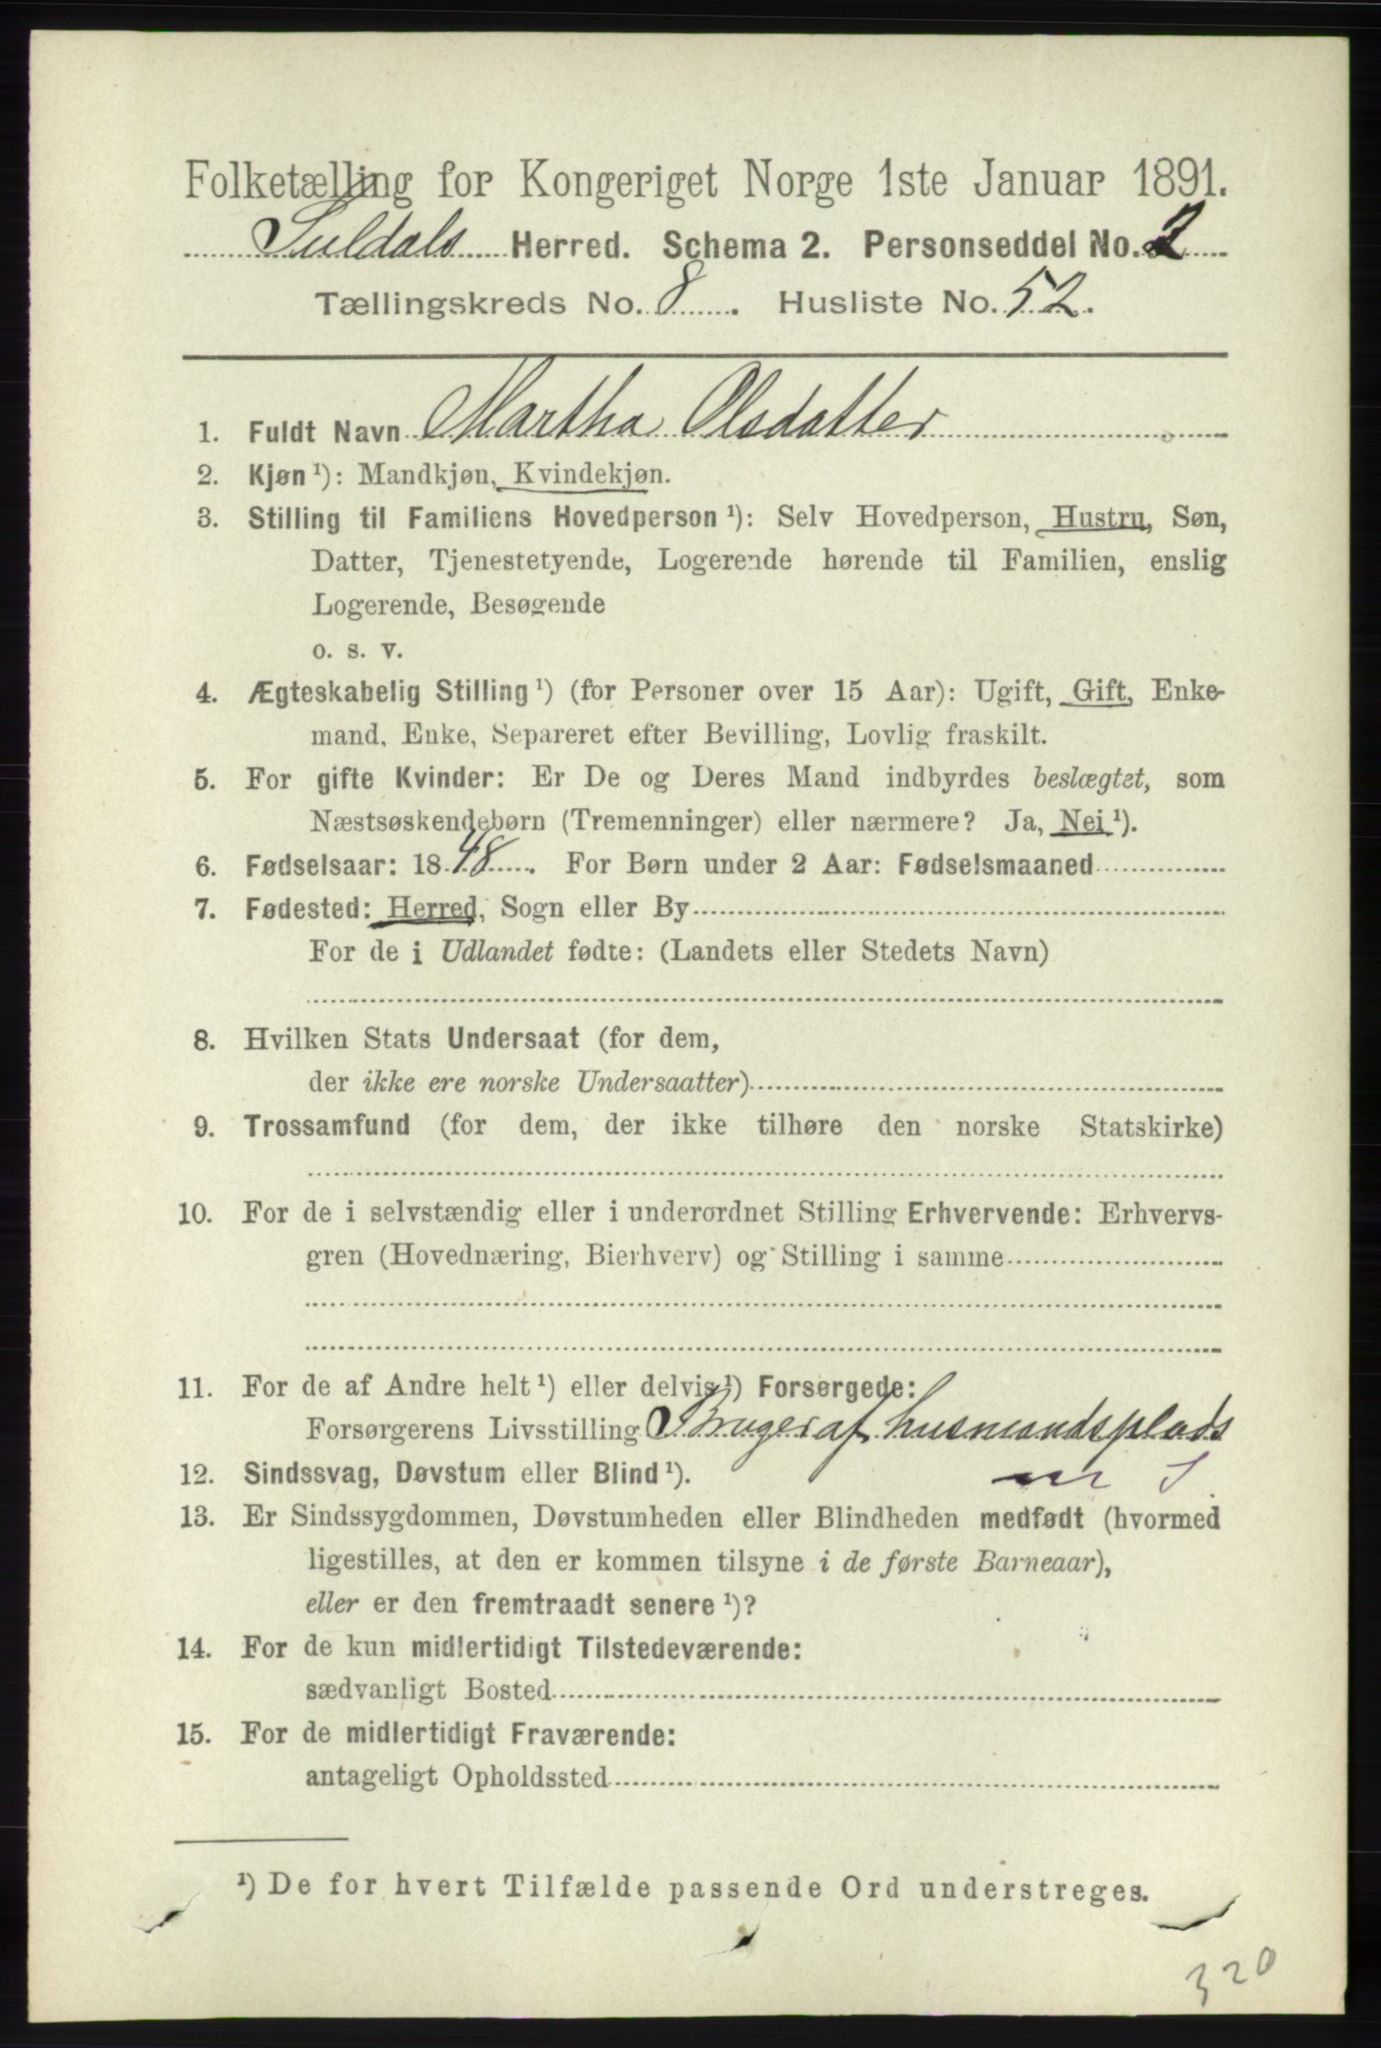 Folketælling for Kongeriget Norge 1ste Januar 1891.
Suldals Herred. Schema 2. Personseddel No. 2
Tællingskreds No. 8. Husliste No. 52.
1. Fuldt Navn Martha Olsdatter
2. Kjøn ¹): Mandkjøn, Kvindekjøn.
3. Stilling til Familiens Hovedperson ¹): Selv Hovedperson, Hustru, Søn,
Datter, Tjenestetyende, Logerende hørende til Familien, enslig
Logerende, Besøgende
o. s. v.
4. Ægteskabelig Stilling ¹) (for Personer over 15 Aar): Ugift, Gift, Enke-
mand, Enke, Separeret efter Bevilling, Lovlig fraskilt.
5. For gifte Kvinder: Er De og Deres Mand indbyrdes beslægtet, som
Næstsøskendebørn (Tremenninger) eller nærmere? Ja, Nei ¹).
6. Fødselsaar: 1848. For Børn under 2 Aar: Fødselsmaaned
7. Fødested: Herred, Sogn eller By
For de i Udlandet fødte: (Landets eller Stedets Navn)
8. Hvilken Stats Undersaat (for dem,
der ikke ere norske Undersaatter)
9. Trossamfund (for dem, der ikke tilhøre den norske Statskirke)
10. For de i selvstændig eller i underordnet Stilling Erhvervende: Erhvervs-
gren (Hovednæring, Bierhverv) og Stilling i samme
11. For de af Andre helt ¹) eller delvis ¹) Forsørgede:
Forsørgerens Livsstilling Bruger af husmandsplads
12. Sindssvag, Døvstum eller Blind ¹). m S
13. Er Sindssygdommen, Døvstumheden eller Blindheden medfødt (hvormed
ligestilles, at den er kommen tilsyne i de første Barneaar),
eller er den fremtraadt senere ¹)?
14. For de kun midlertidigt Tilstedeværende:
sædvanligt Bosted
15. For de midlertidigt Fraværende:
antageligt Opholdssted
¹) De for hvert Tilfælde passende Ord understreges.
320